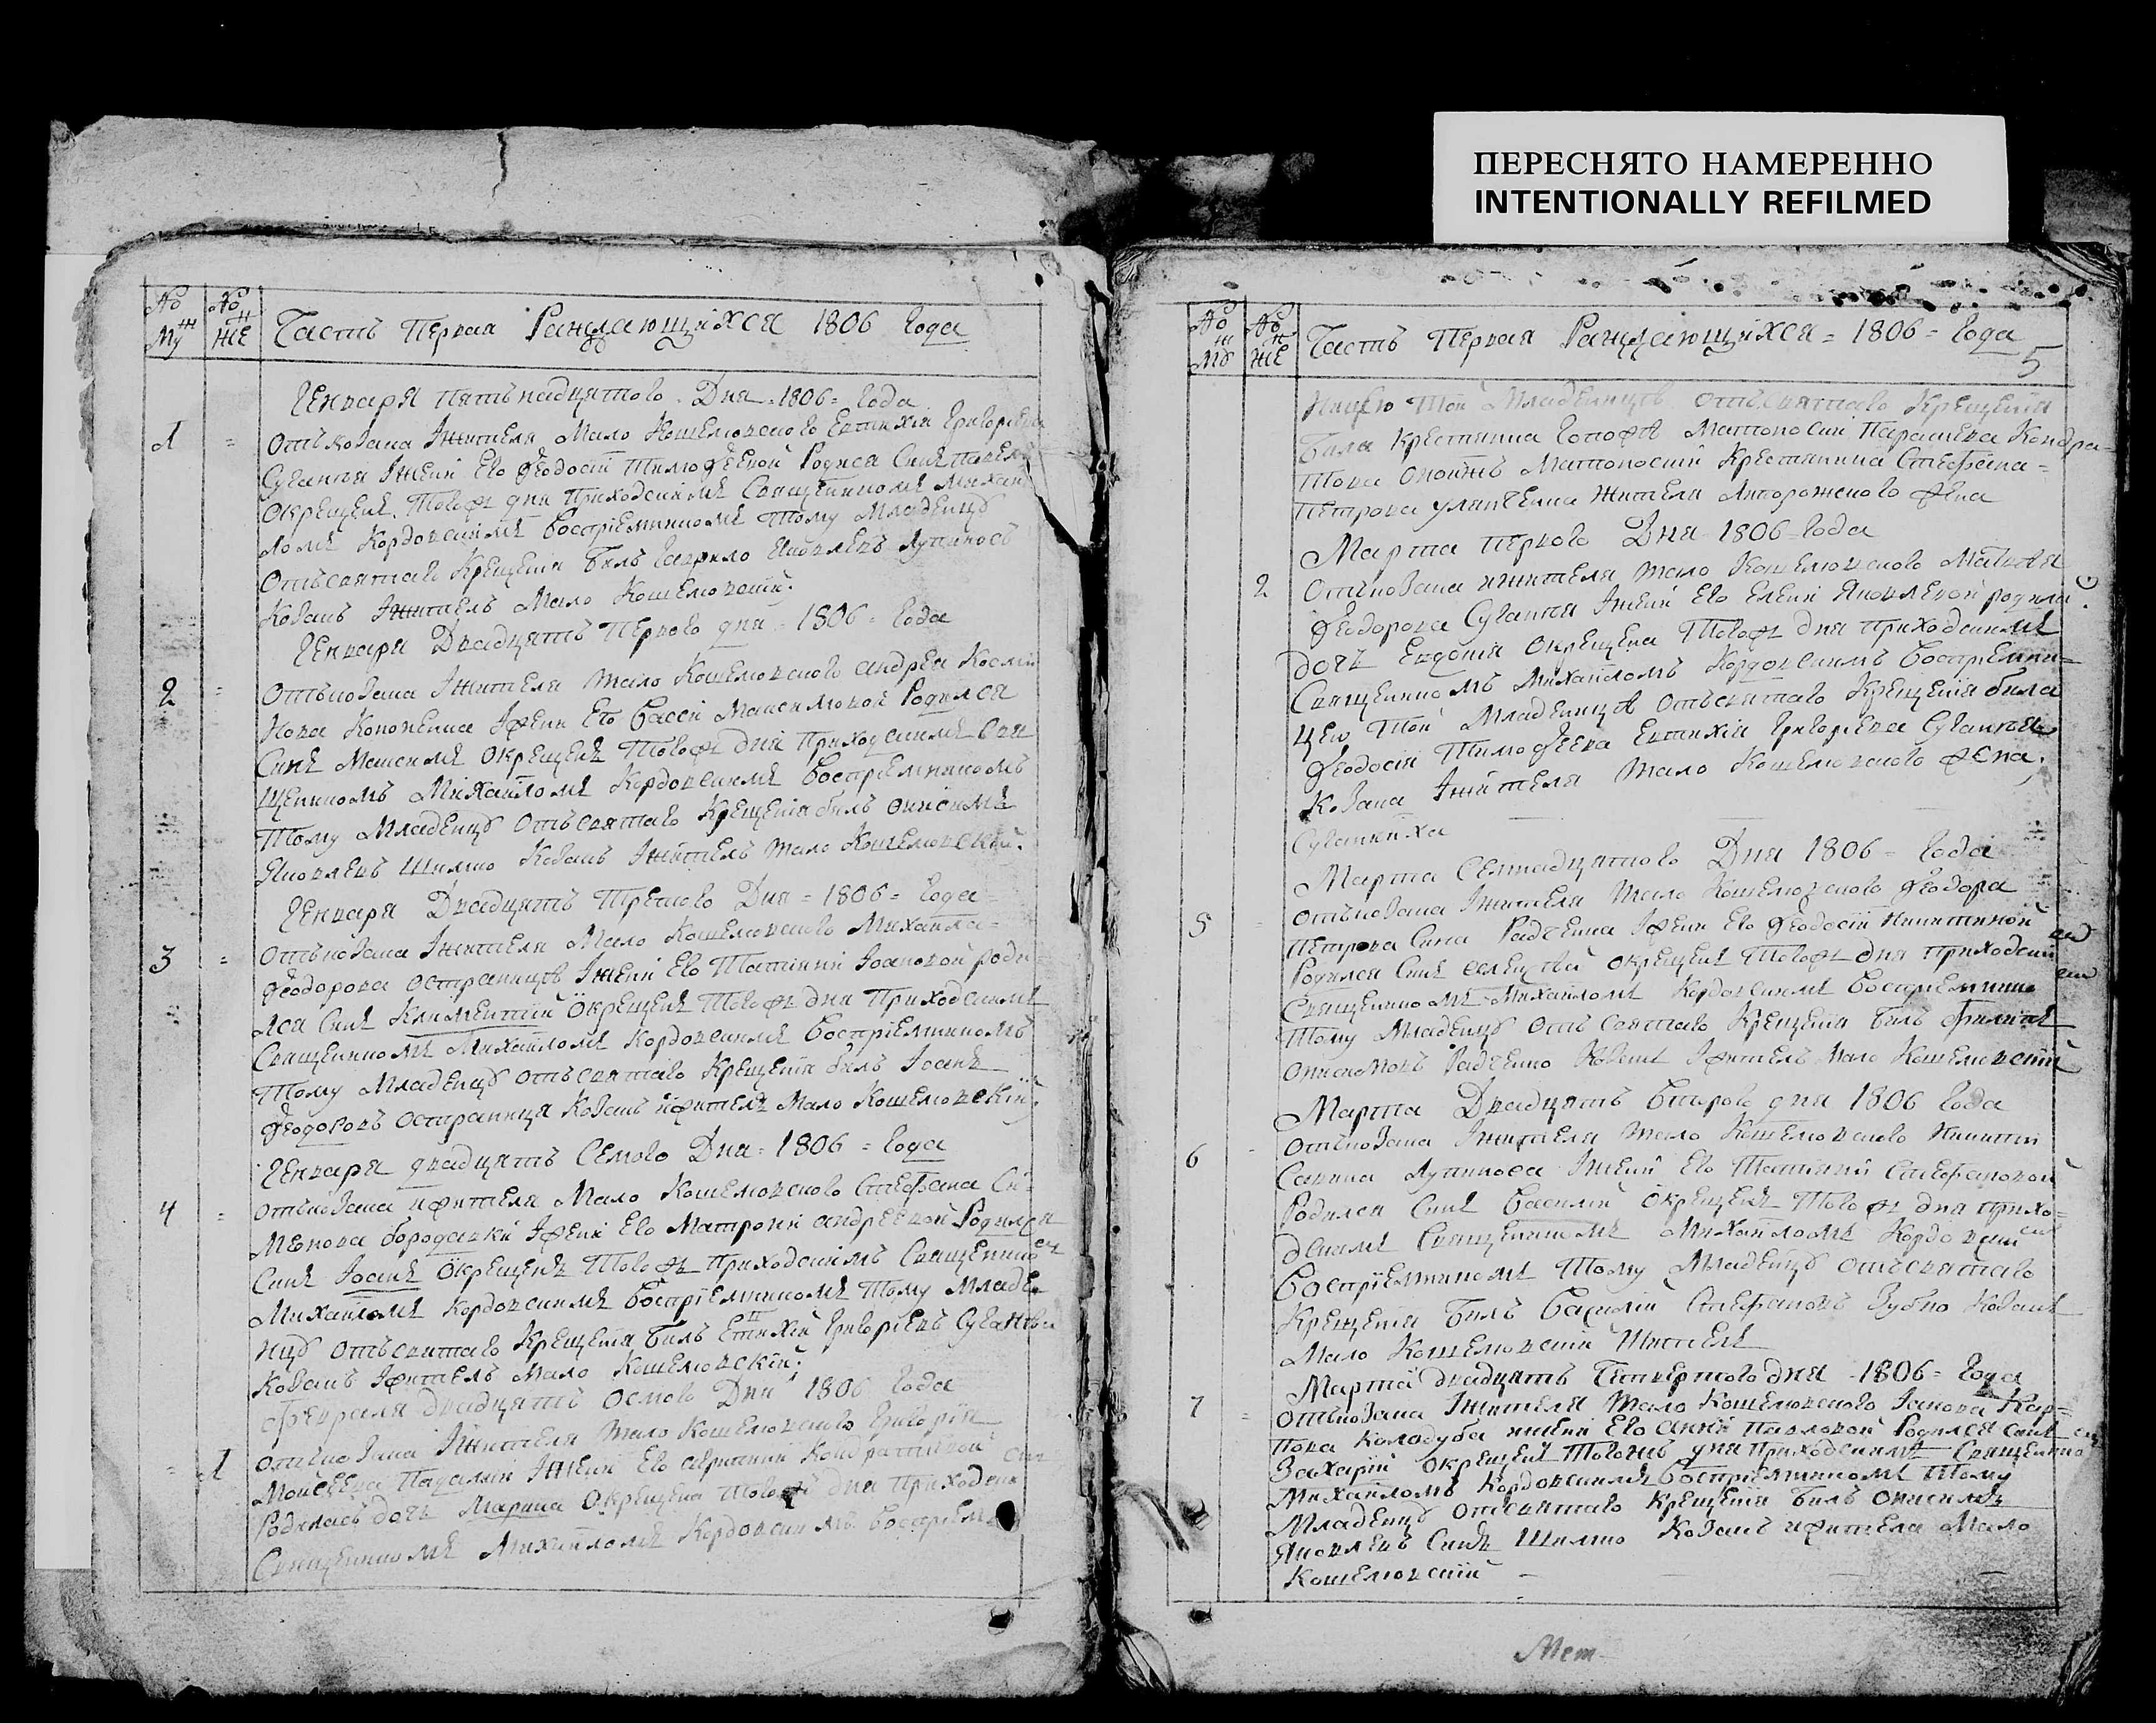 ПЕРЕСНЯТО НАМЕРЕННО
INTENTIONALLY REFILMED
№ Муж № Жен Часть Первая Раждающихся 1806 Года
Генваря пятьнадцятого Дня 1806 = Года
1 = Отъ козака Жителя Мало Кошелювского Евтихия Григориева
Жени Его Феодосіи Тимофеевой Родися Синъ
Окрещенъ Тогож дня Приходскимъ Священникомъ Михаи
ломъ Кордовскимъ Воспріемникомъ Тому Младенцу
Отъ святаго Крещенія Билъ Гаврило Яковлевъ Лупиносъ
Козакъ Житель Мало Кошелювскій.
Генваря Двадцять Первого дня = 1806 = Года
2 = Отъ козака Жителя Мало Кошелювского андрея Косми
Жени Его Васси Максимовой Родился
Синъ Максимъ Окрещенъ Тогож дня Приходскимъ Свя
щенникомъ Михаиломъ Кордовскимъ Воспріемникомъ
Тому Младенцу Отъ святаго Крещенія билъ Онисимъ
Яковлевъ Шилко Козакъ Житель Мало Кошелювский.
Генваря Двадцять Третого Дня = 1806 = Года
3 = Отъ козака Жителя Мало Кошелювского Михаила =
Феодорова Остраници Жени Его Татіяни Іоановой роди
лся Синъ Климентий Окрещенъ Тогож дня Приходскимъ
Священникомъ Михаиломъ Кордовскимъ Воспріемникомъ
Тому Младенцу отъ святаго Крещенія билъ Іоанъ
Феодоровъ Остраница Козакъ житель Мало Кошелювскій.
Генваря двадцять Семого Дня = 1806 = Года
4 = Отъ козака жителя Мало Кошелювского Стефана Си
меонова Бородавки Жени Его Матрони андреевой Родился
Синъ Іоанъ Окрещенъ Тогож Приходскимъ Священником
Михаиломъ Кордовскимъ Воспріемникомъ Тому Младе
нцу Отъ святаго Крещенія Билъ Григоріевъ
Козакъ Житель Мало Кошелювскій.
Февраля двадцять осмого Дня 1806 Года
= 1 Отъ козака Жителя Мало Кошелювского Григорія
Мойсеева Жени Его Кондратіевой
Родилась дочь Марина Окрещена Тогож дня Приходски
Священникомъ Михаиломъ Кордовскимъ Воспріем
№ Муж № Жен Часть Первая Раждающихся = 1806 = Года
5
ницею Той Младенице Отъ святаго Крещенія
Била Крестянина Матоноски Параскева Кондра
Матоноски Крестянина Стефана =
Петрова Жителя
Марта первого Дня 1806 Года
2 Отъ козака жителя Мало Кошелювского Матвея
Феодорова Жени Его Елени Яковлевой родила
дочь Евдокія Окрещена Тогож дня приходскимъ
Священникомъ Михаиломъ Кордовскимъ Воспріемни =
цею Той Младенице отъ святаго Крещенія била
Феодосія Тимофеева Евтихія Григориева
Козака Жителя Мало Кошелювского жена,
Марта Семнадцятого Дня 1806 = Года
5 = Отъ козака Жителя Мало Кошелювского Феодора
Петрова Сина Радченка Жени Его Феодосіи Никитиной
Родился Синъ окрещенъ Тогож дня приходским
Священникомъ Михаиломъ Кордовскимъ Воспріемником
Тому Младенцу Отъ святаго Крещенія Билъ Филипъ
Радченко Козакъ Житель Мало Кошелювскій
Марта Двадцять Второго дня 1806 Года
6 - Отъ козака Жителя Мало Кошелювского Никити
Савина Лупиноса Жени Его Татіяни Стефановой
Родился Синъ Василій Окрещенъ Тогож дня прихо =
дскимъ Священникомъ Михаиломъ Кордовским
Воспріемникомъ Тому Младенцу отъ святаго
Крещенія Билъ Василій Стефановъ Зубко Козакъ
Мало Кошелювскій Житель
Марта двадцять Четвертого дня 1806 = Года
7 = Отъ козака Жителя Мало Кошелювского Іакова Кар =
пова Колодуба жени Его Анни Павловой Родился Синъ
Захарій окрещенъ Тогожъ дня Приходскимъ Священико
Михаиломъ Кордовскимъ Воспріемникомъ Тому
Младенцу Отъ святаго Крещенія Билъ Онисимъ
Яковлевъ Синъ Шилко Козакъ жителя Мало
Кошелювскій
Мет